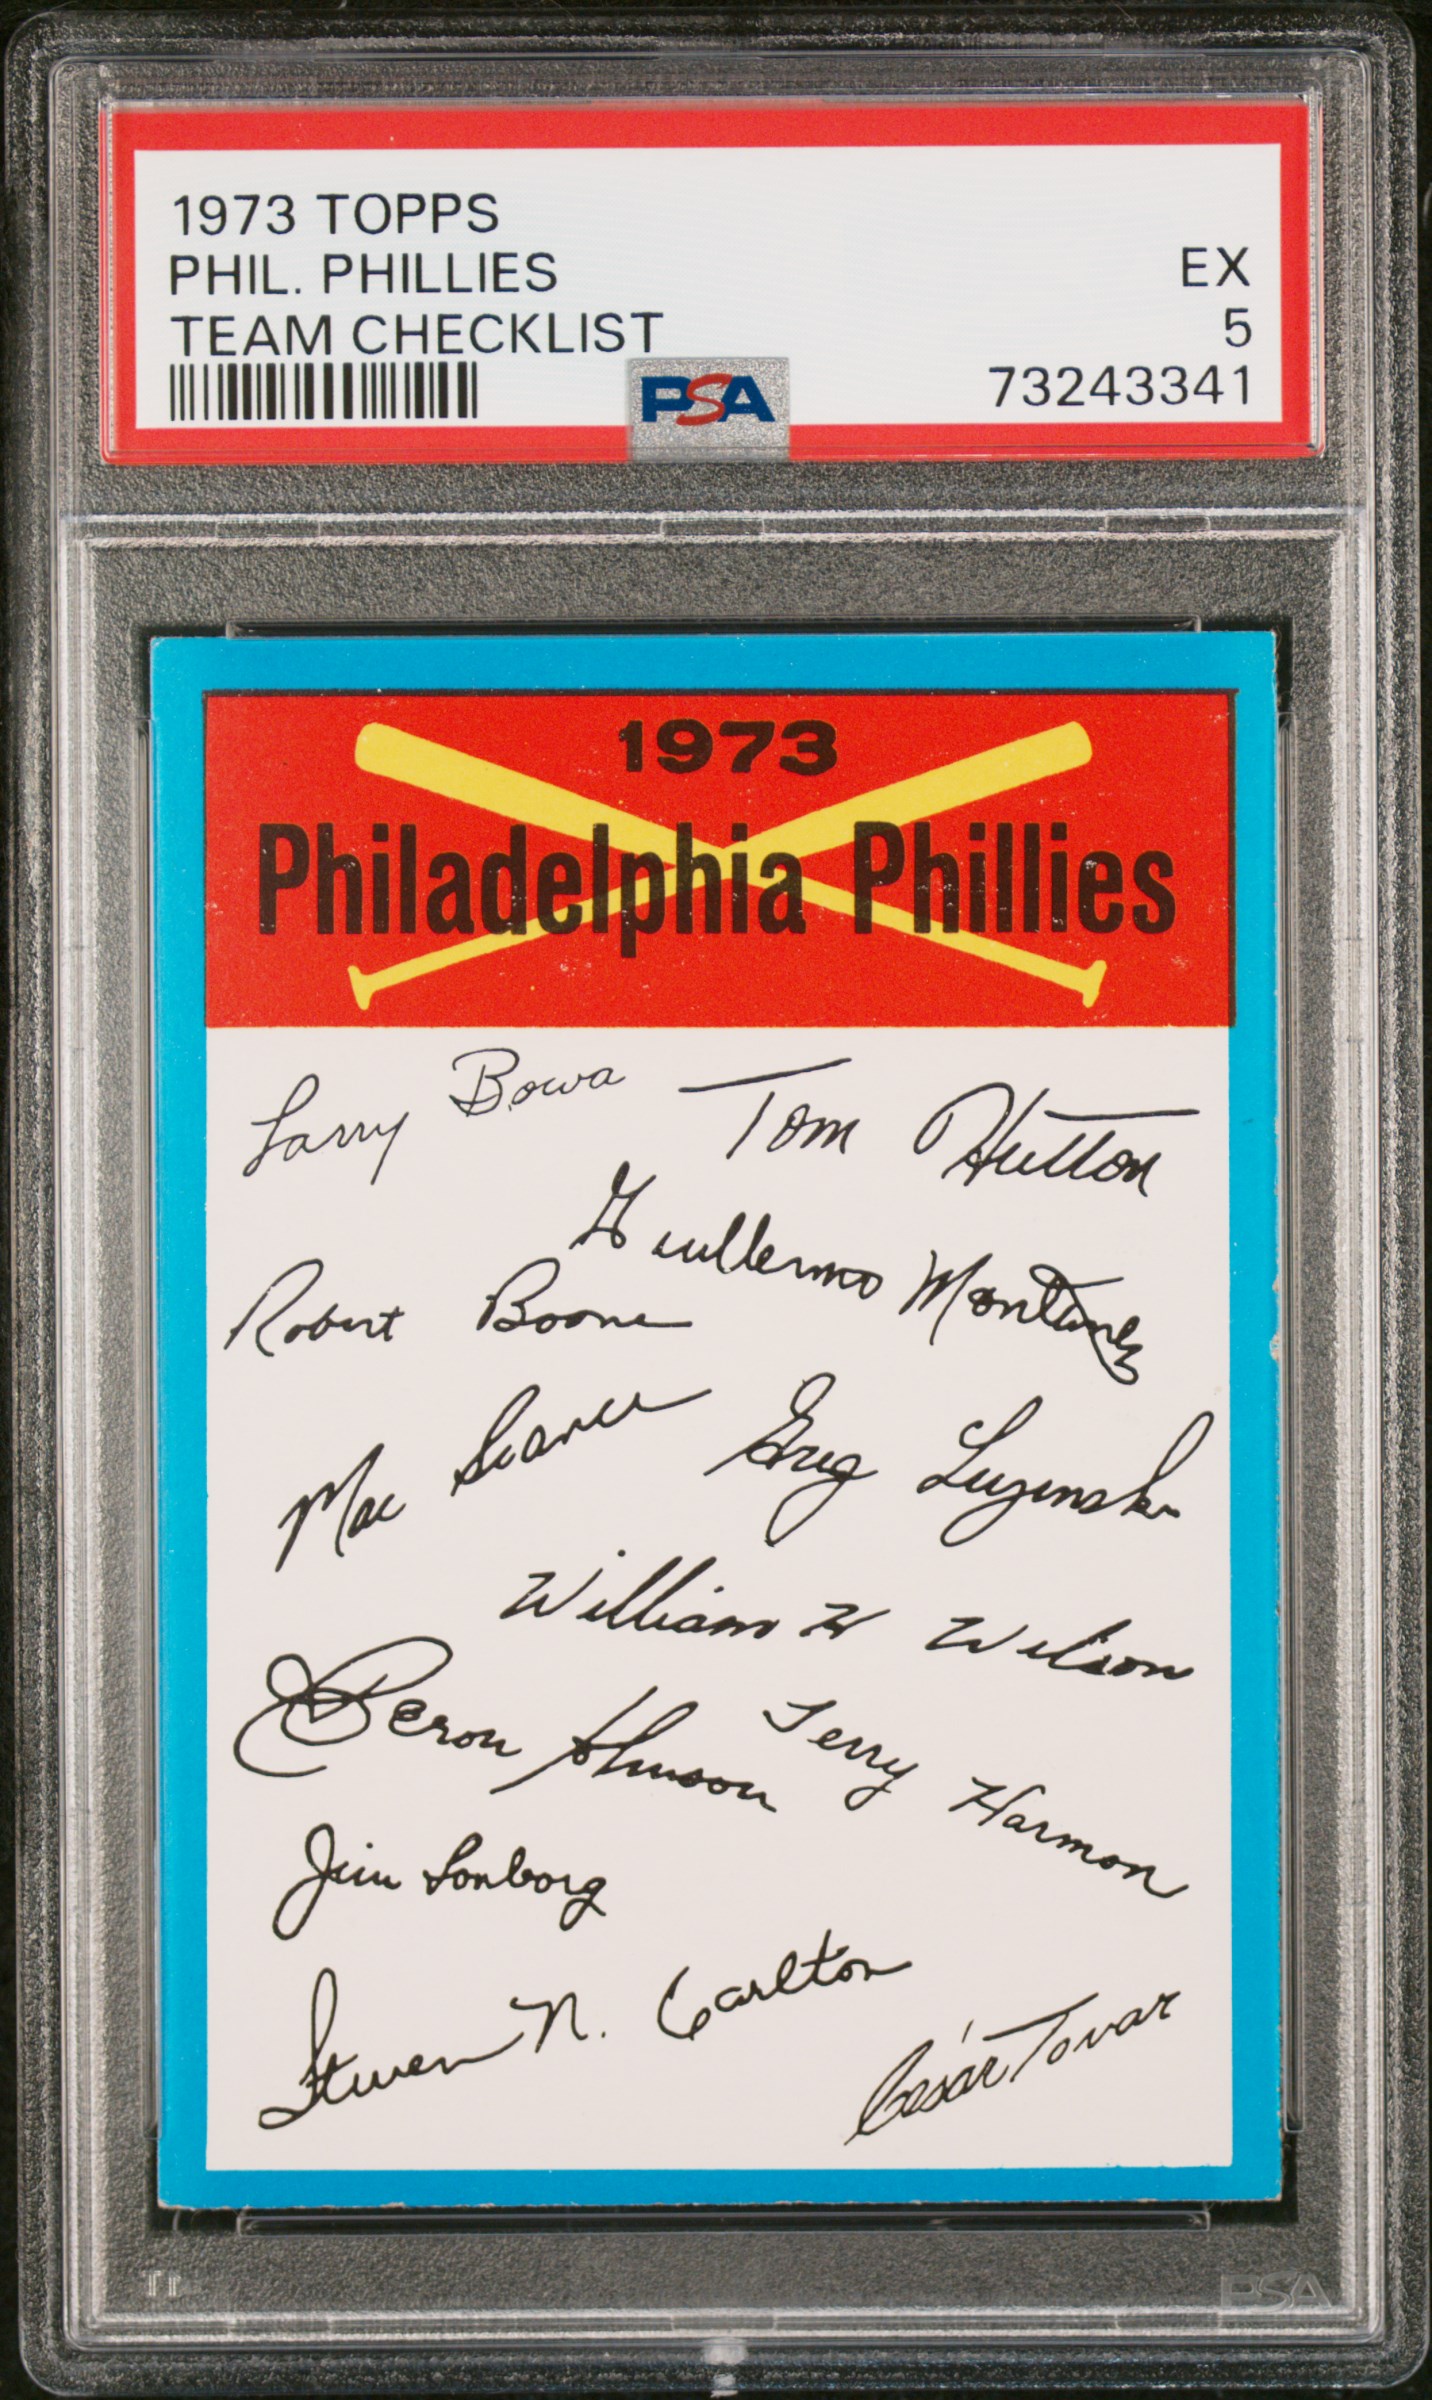 1973 TOPPS
PHIL. PHILLIES
EX
TEAM CHECKLIST
5
PSA
73243341
1973
Philadelphia Phillies
Larry Bowa
Tom Hutton
Guillermo Montanez
Robert Boone
Mac Scarce
Greg Luzinski
William H Wilson
Deron Johnson
Terry Harmon
Jim Lonborg
Steven N. Carlton
César Tovar
PSA